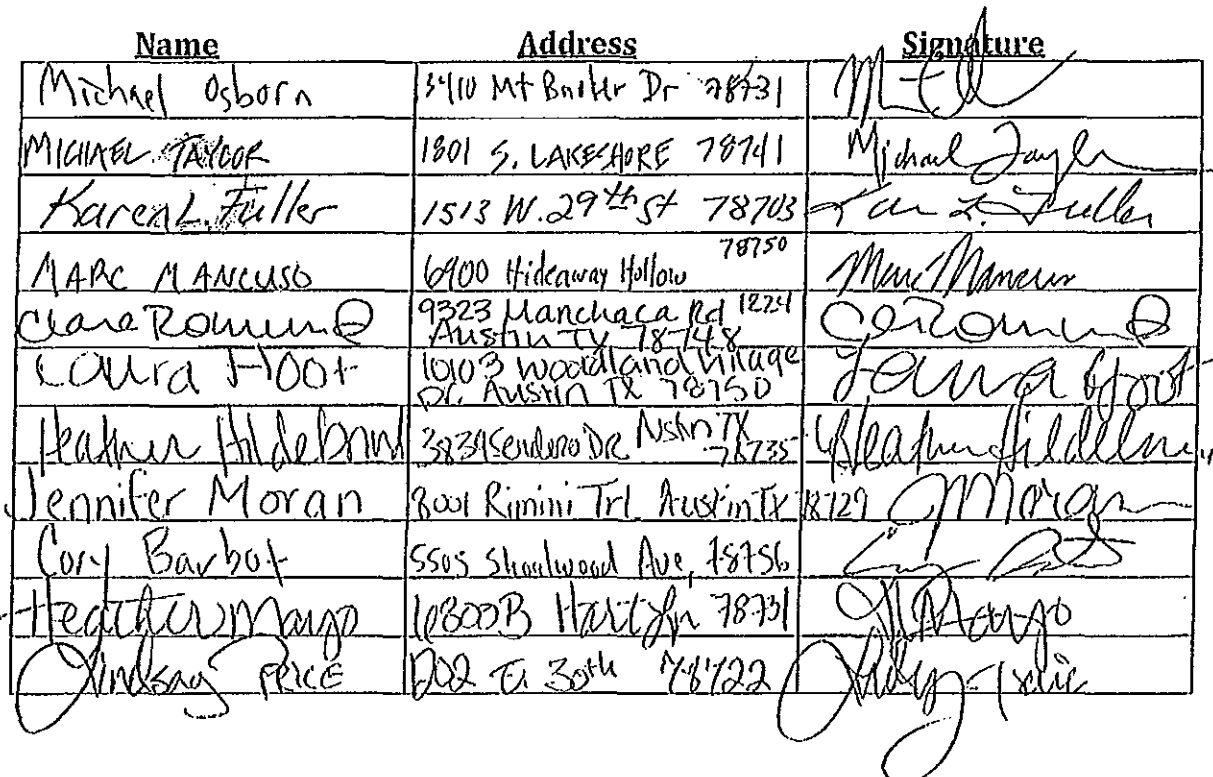 Name Address Signature
Michael Osborn 3410 Mt Dr 78731
MICHAEL TAYLOR 1801 S. LAKESHORE 78741 Michael Taylor
Karen L. Fuller 1513 W. 29th St 78703 L. Fuller
MARC MANCUSO 6900 Hideaway Hollow 78750 Marc Mancuso
9323 Manchaca Rd 1224
Austin TX 78748
Laura Hoot Woodland Village
Dr. Austin TX 78750 Laura Hoot
Heather Hildebrand Dr Austin TX 78735 Heather
Jennifer Moran 8001 Rimini Trl Austin TX 78729 Moran
Cory Barbot 5505 Shoalwood Ave, 78756
Heather Mayo 6800B Hart Ln 78731 Mayo
Lindsay PRICE E. 30th 78722